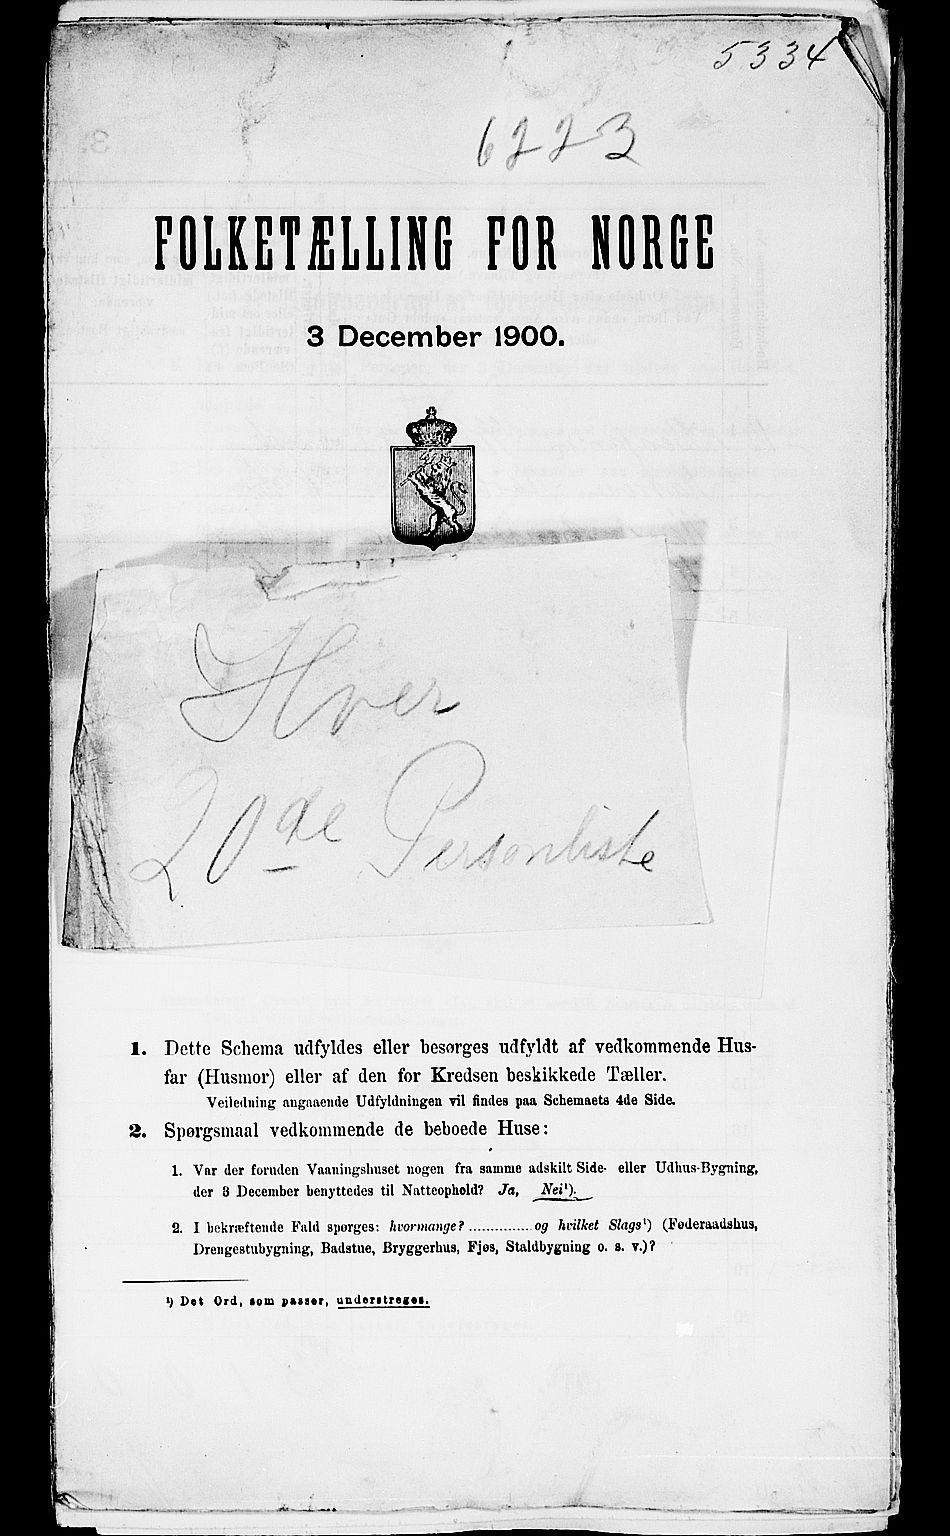 5334
6223
FOLKETÆLLING FOR NORGE
3 December 1900.
Hver
20de Personliste
1. Dette Schema udfyldes eller besørges udfyldt af vedkommende Hus-
far (Husmor) eller af den for Kredsen beskikkede Tæller.
Veiledning angaaende Udfyldningen vil findes paa Schemaets 4de Side.
2. Spørgsmaal vedkommende de beboede Huse:
1. Var der foruden Vaaningshuset nogen fra samme adskilt Side- eller Udhus-Bygning,
der 3 December benyttedes til Natteophold? Ja, Nei¹).
2. I bekræftende Fald spørges: hvormange? .............. og hvilket Slags¹) (Føderaadshus,
Drengestubygning, Badstue, Bryggerhus, Fjøs, Staldbygning o. s. v.)?
¹) Det Ord, som passer, understreges.